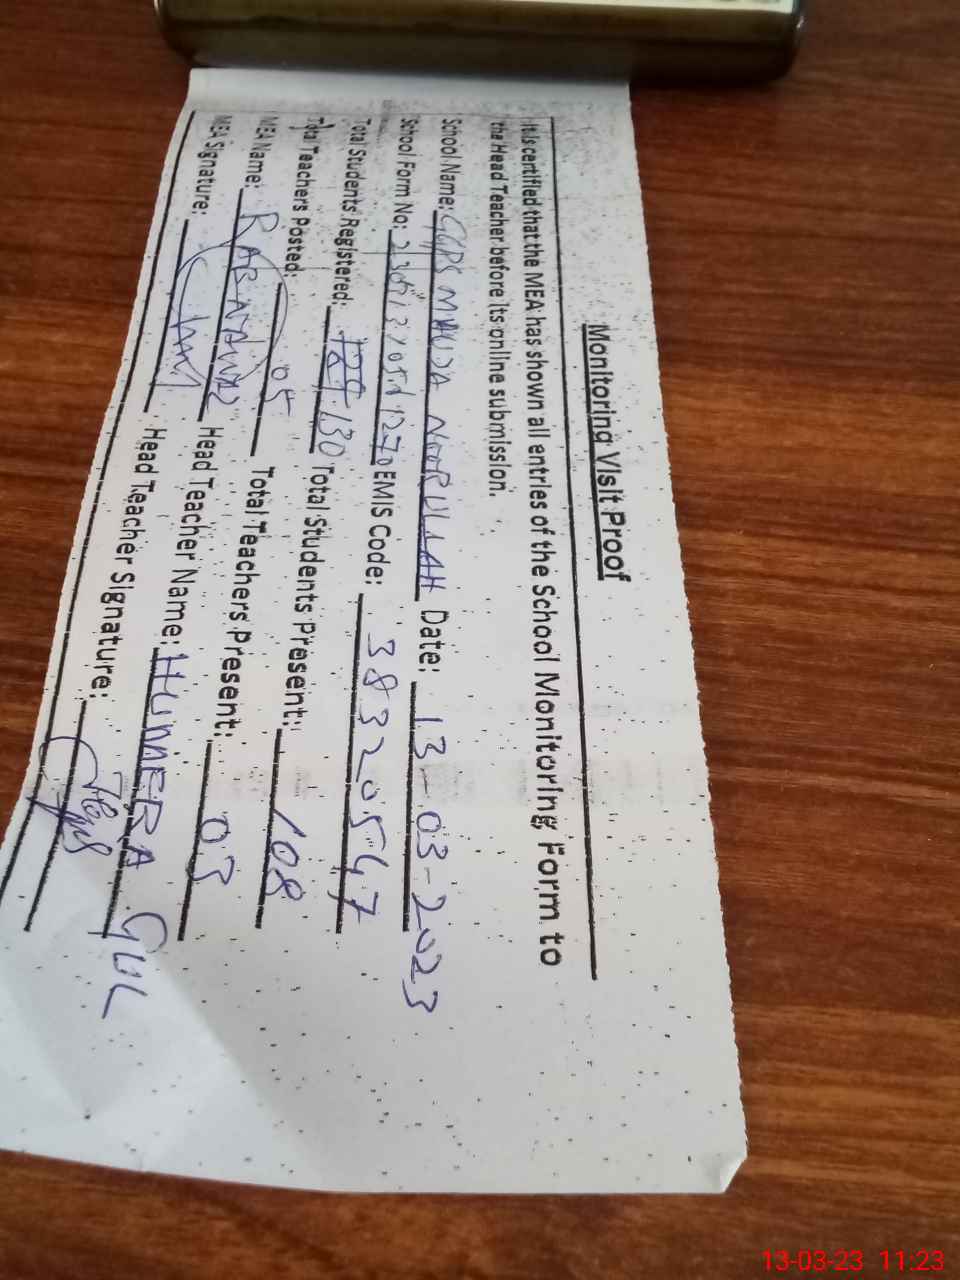 Monitoring Visit Proof
It is certified that the MEA has shown all entries of the School Monitoring Form to
the Head Teacher before its online submission.
School Name: GGPS MAUZA NOORULLAH Date: 13-03-2023
School Form No: EMIS Code: 38320547
Total Students Registered: 130 Total Students Present: 108
Total Teachers Posted: 05 Total Teachers Present: 03
MEA Name: RABNAWAZ Head Teacher Name: HUMERA GUL
MEA Signature: Head Teacher Signature:
13-03-23 11:23